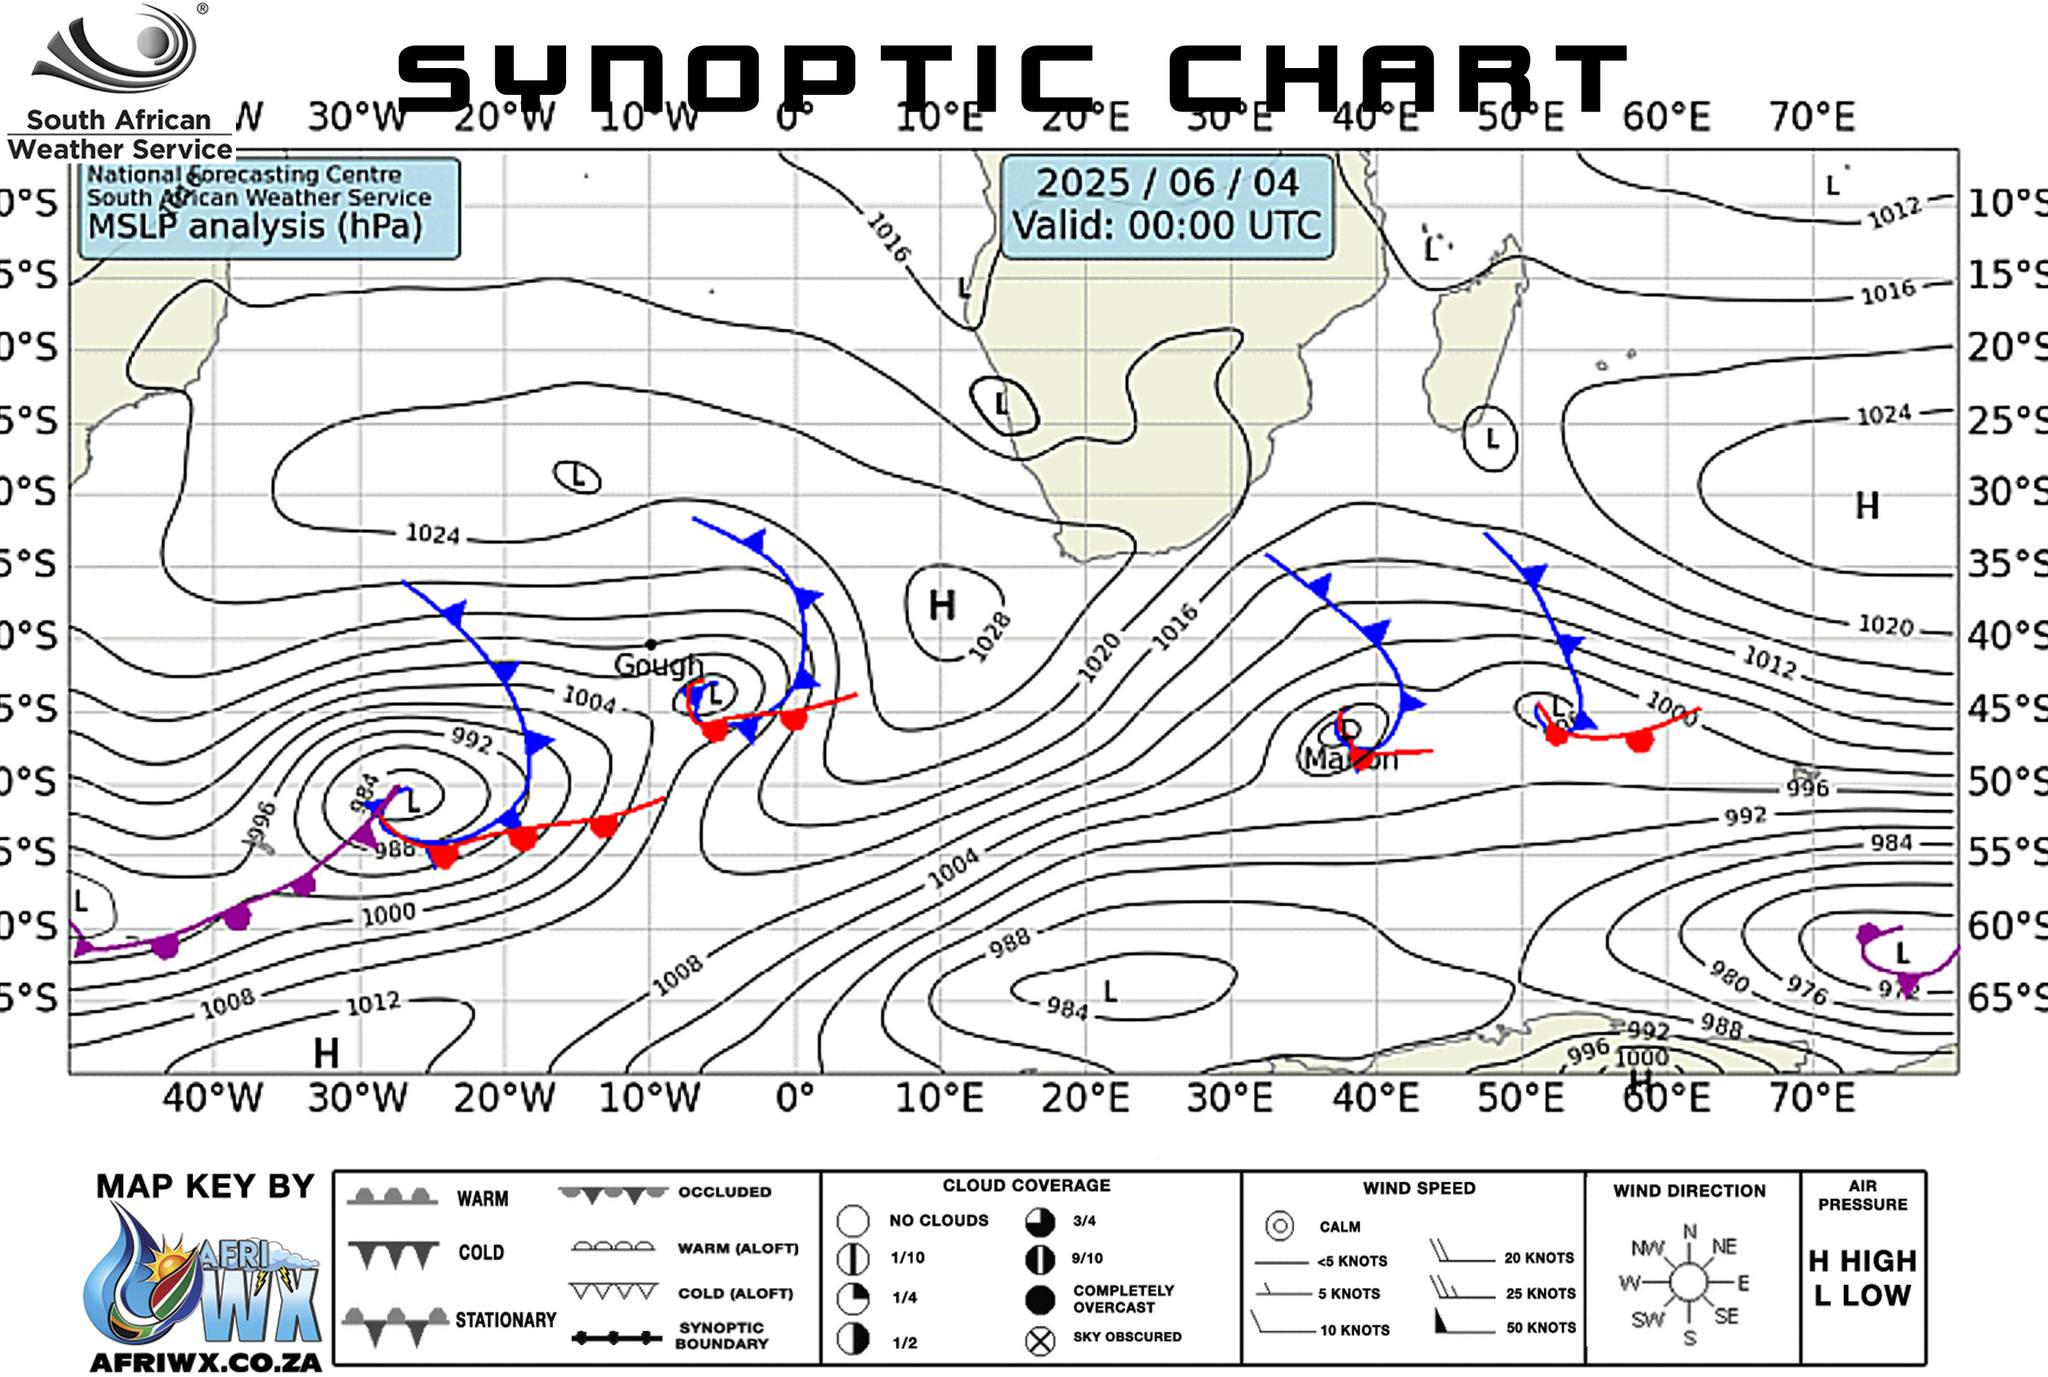 ®
SYNOPTIC CHART
South African
Weather Service
W 30°W 20°W 10°W 0° 10°E 20°E 30°E 40°E 50°E 60°E 70°E
National Forecasting Centre
South African Weather Service
MSLP analysis (hPa)
2025 / 06 / 04
Valid: 00:00 UTC
L
0°S 1012 10°S
1016
L
5°S L 1016 15°S
0°S 20°S
L
5°S 1024 25°S
L
L
0°S H 30°S
1024
5°S 35°S
H
1028 1016 1020
0°S 1020 40°S
Gough
1012
L
1004 1000
L
5°S 45°S
992
L
Marion
0°S 984 L 996 50°S
992
996
988 984
5°S 1004 55°S
L 1000
0°S 988 60°S
L
1008 980 976 972
5°S 1008 1012 984 L 65°S
992 988
H 996 1000
H
40°W 30°W 20°W 10°W 0° 10°E 20°E 30°E 40°E 50°E 60°E 70°E
MAP KEY BY
AFRI
WX
AFRIWX.CO.ZA
WARM
COLD
STATIONARY
OCCLUDED
WARM (ALOFT)
COLD (ALOFT)
SYNOPTIC
BOUNDARY
CLOUD COVERAGE
NO CLOUDS
1/10
1/4
1/2
3/4
9/10
COMPLETELY
OVERCAST
SKY OBSCURED
WIND SPEED
CALM
<5 KNOTS
5 KNOTS
10 KNOTS
20 KNOTS
25 KNOTS
50 KNOTS
WIND DIRECTION
N
NW NE
W E
SW SE
S
AIR
PRESSURE
H HIGH
L LOW